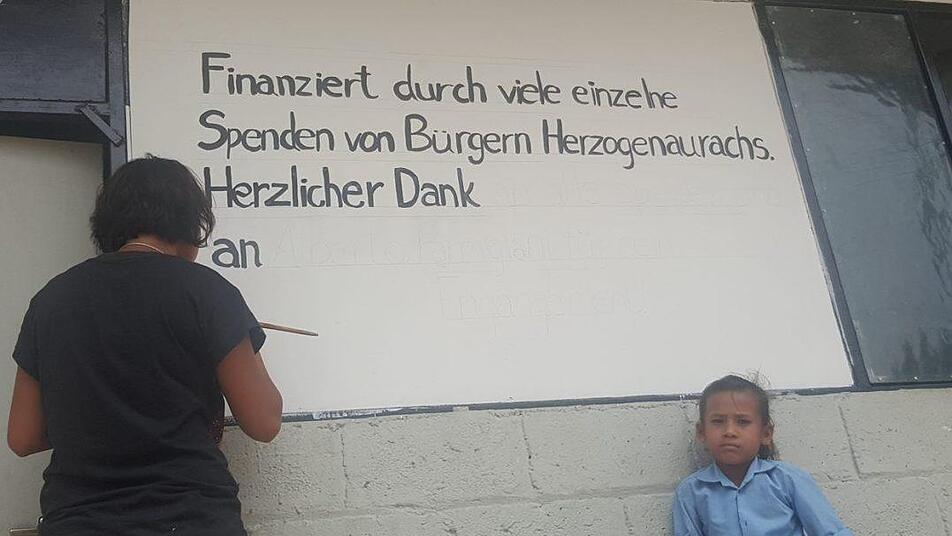 Finanziert durch viele einzelne
Spenden von Bürgern Herzogenaurachs.
Herzlicher Dank
an